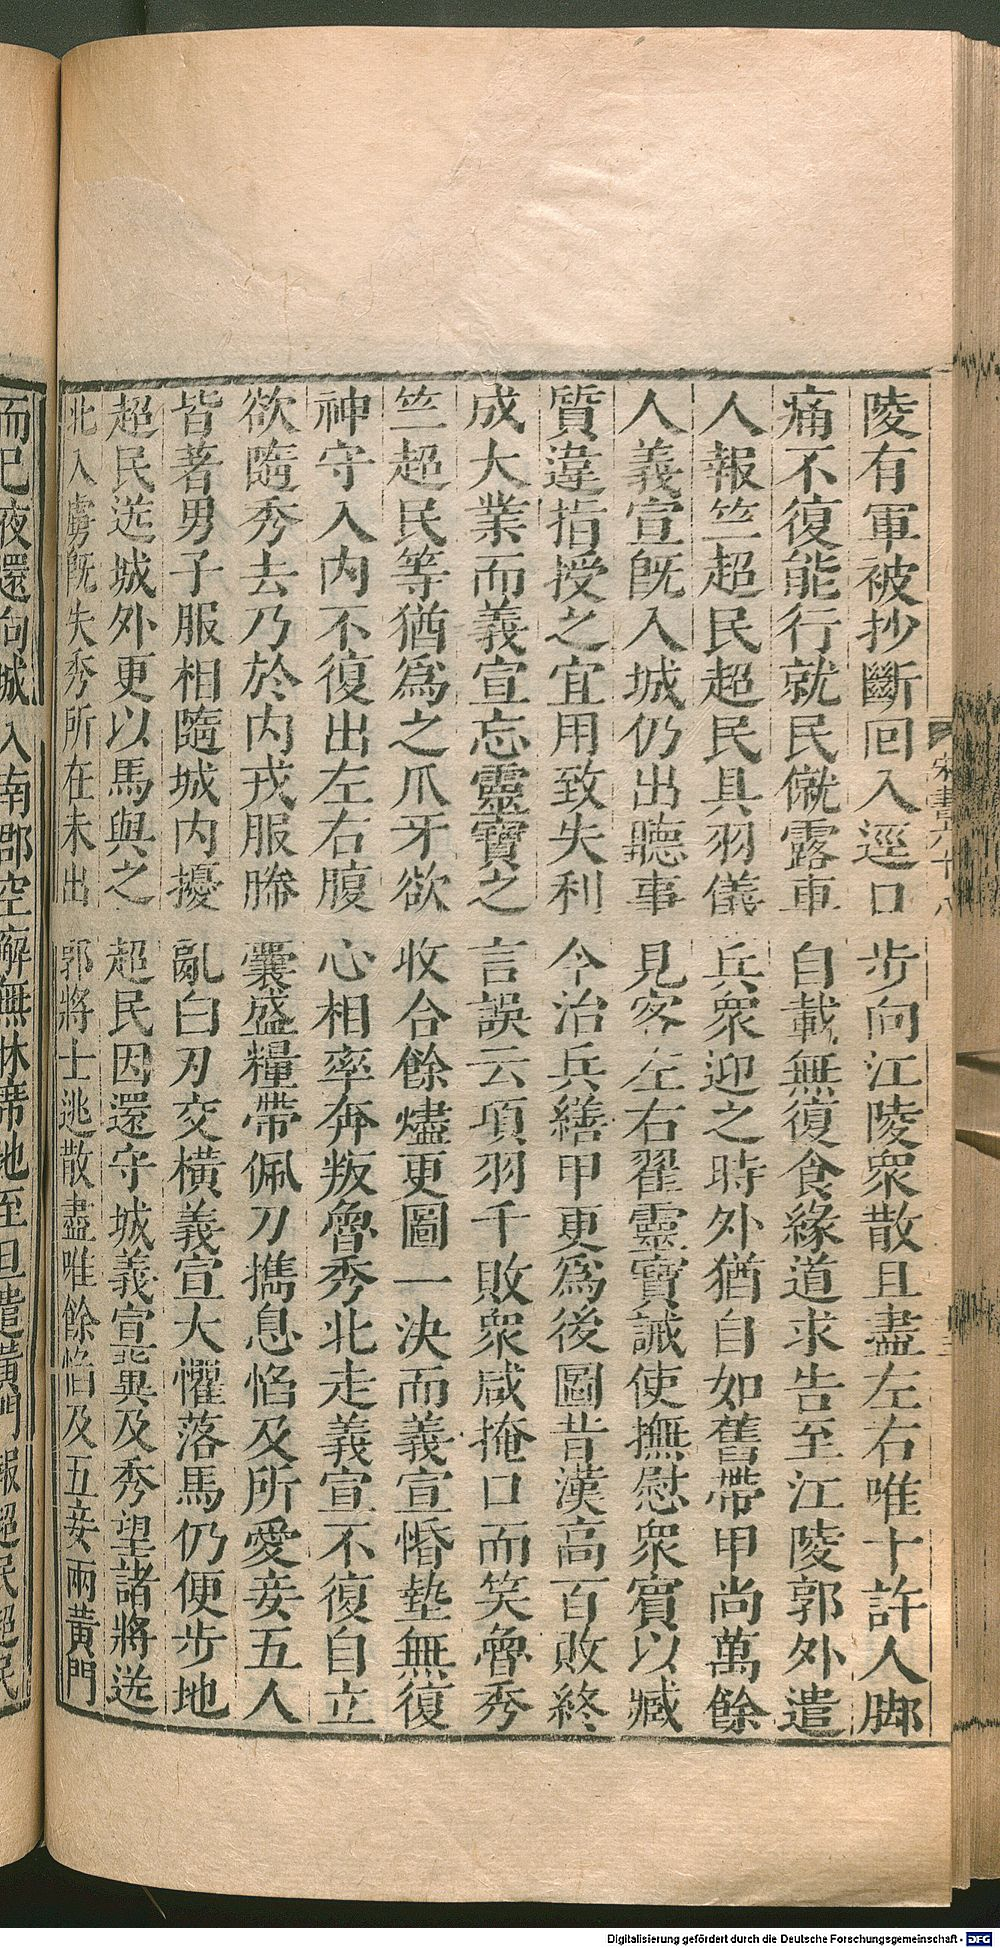 陵有軍被抄斷回入逕口步向江陵衆散且盡左右唯十許人脚
痛不復能行就民僦露車自載無復食緣道求告至江陵郭外遣
人報竺超民超民具羽儀兵衆迎之時外猶自如舊帶甲尚萬餘
人義宣旣入城仍出聽事見客左右翟靈寶誡使撫慰衆賓以臧
質違指授之宜用致失利今治兵繕甲更爲後圖昔漢高百敗終
成大業而義宣忘靈寶之言誤云項羽千敗衆咸掩口而笑魯秀
竺超民等猶爲之爪牙欲收合餘燼更圖一決而義宣惛墊無復
神守入內不復出左右腹心相率奔叛魯秀北走義宣不復自立
欲隨秀去乃於內戎服幐囊盛糧帶佩刀攜息慆及所愛妾五人
皆著男子服相隨城內擾亂白刃交橫義宣大懼落馬仍便步地
超民送城外更以馬與之超民因還守城義宣冀及秀望諸將送
北入虜旣失秀所在未出郭將士逃散盡唯餘慆及五妾兩黃門
而已夜還向城入南郡空廨無牀席地至旦遣黃門報超民超民
宋書六十八
Digitalisierung gefördert durch die Deutsche Forschungsgemeinschaft - DFG